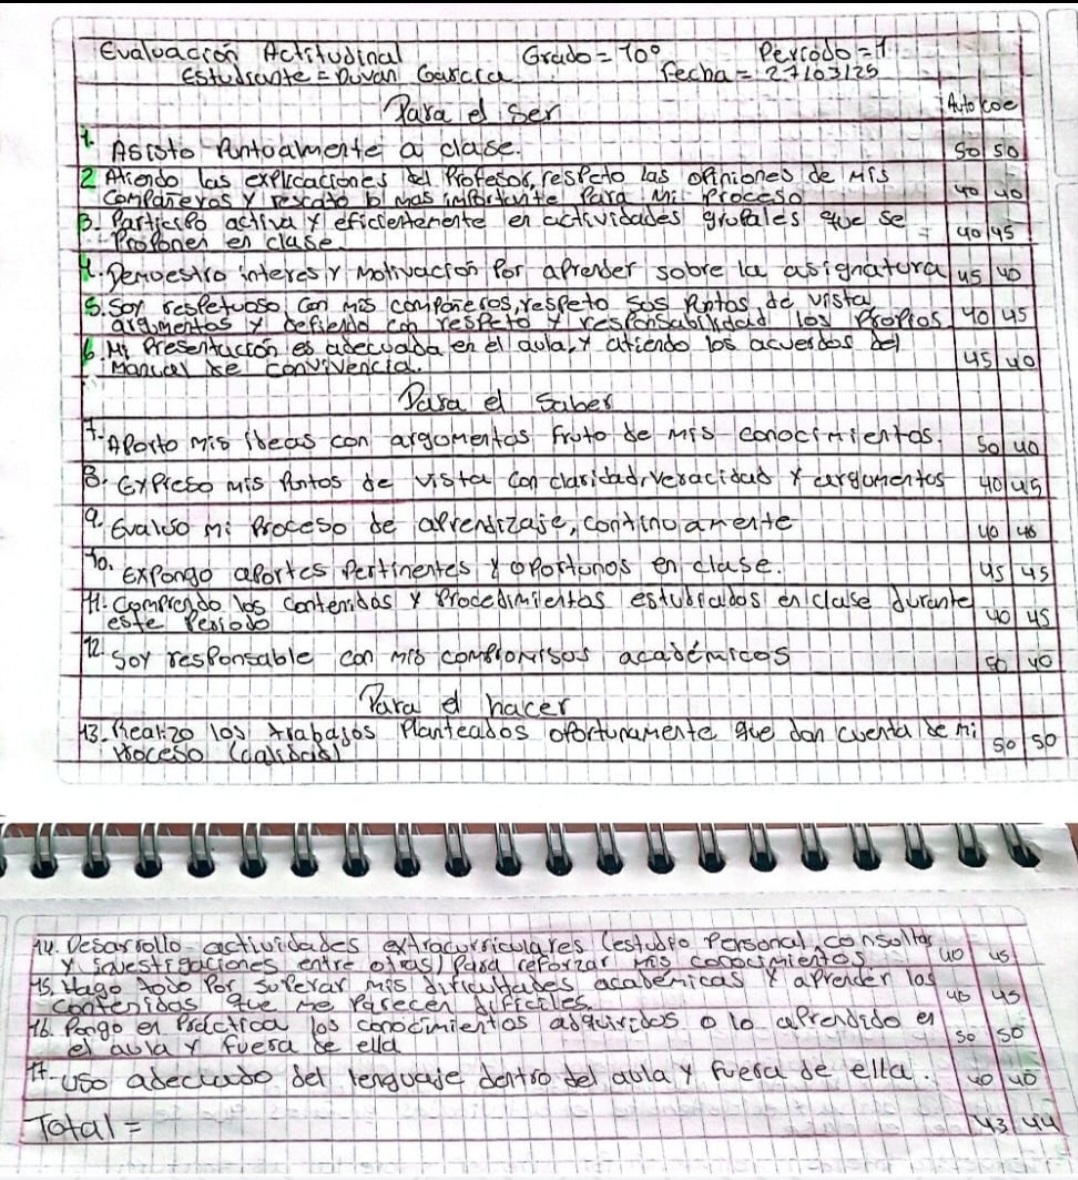 Evaluación Actitudinal Grado = 10° Periodo = 1
Estudiante = Duvan García Fecha = 27/03/25
Para el Ser Auto coe
1. Asisto Puntoalmente a clase. 50 50
2 Atiendo las explicaciones del Profesor, respeto las opiniones de mis
Compañeros y rescato lo mas importante Para mi Proceso 40 40
3. Participo activa y eficientemente en actividades grupales que se
Proponen en clase. 40 45
4. Demuestro interes y motivación Por aprender sobre la asignatura 45 40
5. Soy respetuoso con mis compañeros, respeto sus Puntos de vista,
argumentos y defiendo con respeto y responsabilidad los Propios 40 45
6. Mi Presentación es adecuada en el aula, y atiendo los acuerdos del
Manual de convivencia. 45 40
Para el Saber
7. Aporto mis ideas con argumentos fruto de mis conocimientos. 50 40
8. Expreso mis Puntos de vista con claridad, veracidad y argumentos 40 45
9. Evaluo mi Proceso de aprendizaje, continuamente 40
10. Expongo aportes Pertinentes y oportunos en clase. 45 45
11. Comprendo los contenidos y Procedimientos estudiados en clase durante
este Periodo 40 45
12. Soy responsable con mis compromisos académicos 50 40
Para el hacer
13. Realizo los trabajos Planteados oportunamente que dan cuenta de mi
Proceso (calidad) 50 50
14. Desarrollo actividades extracurriculares (estudio Personal, consultas
y investigaciones entre otras) Para reforzar mis conocimientos 40 45
15. Hago todo Por superar mis dificultades académicas y aprender los
contenidos que me Parecen dificiles. 45
16. Pongo en Práctica los conocimientos adquiridos o lo aprendido en
el aula y fuera de ella 50 50
17. Uso adecuado del lenguaje dentro del aula y fuera de ella. 40 40
Total = 43 44